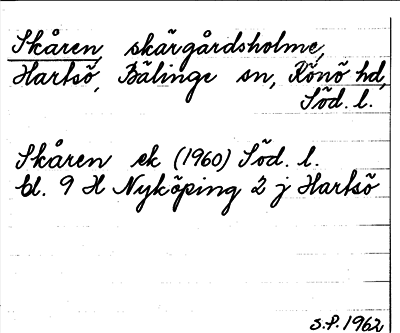 Skåren, skärgårdsholme,
Hartsö, Bälinge sn, Rönö hd,
Söd. l.
Skåren ek (1960) Söd. l.
bl. 9 H Nyköping 2 j Hartsö
S.P. 1962